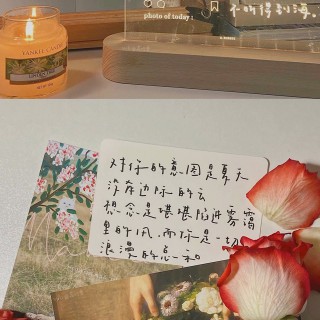 YANKEE CANDLE
photo of today :
对你的意图是夏天
没有边际的云
想念是堪堪陷进雾霭
里的风.而你是一切
浪漫的总和